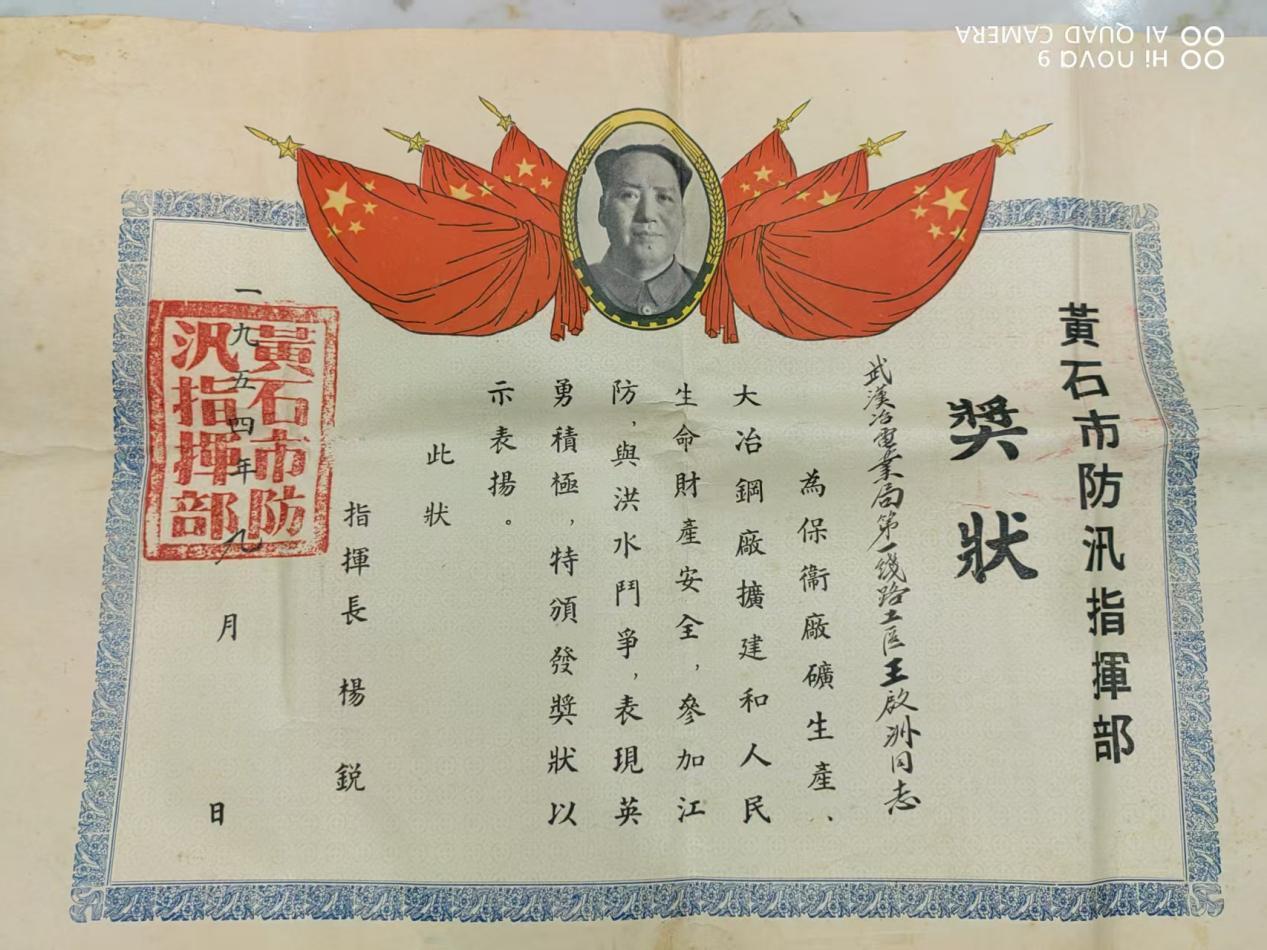 黃石市防汛指揮部
獎狀
武漢冶電業局第一綫路工區王啟洲同志
為保衞廠礦生產、
大冶鋼廠擴建和人民
生命財產安全，參加江
防，與洪水鬥爭，表現英
勇積極，特頒發獎狀以
示表揚。
此狀
指揮長 楊銳
一九五四年九月 日
黃石市防
汛指揮部
Hi nova 9
AI QUAD CAMERA